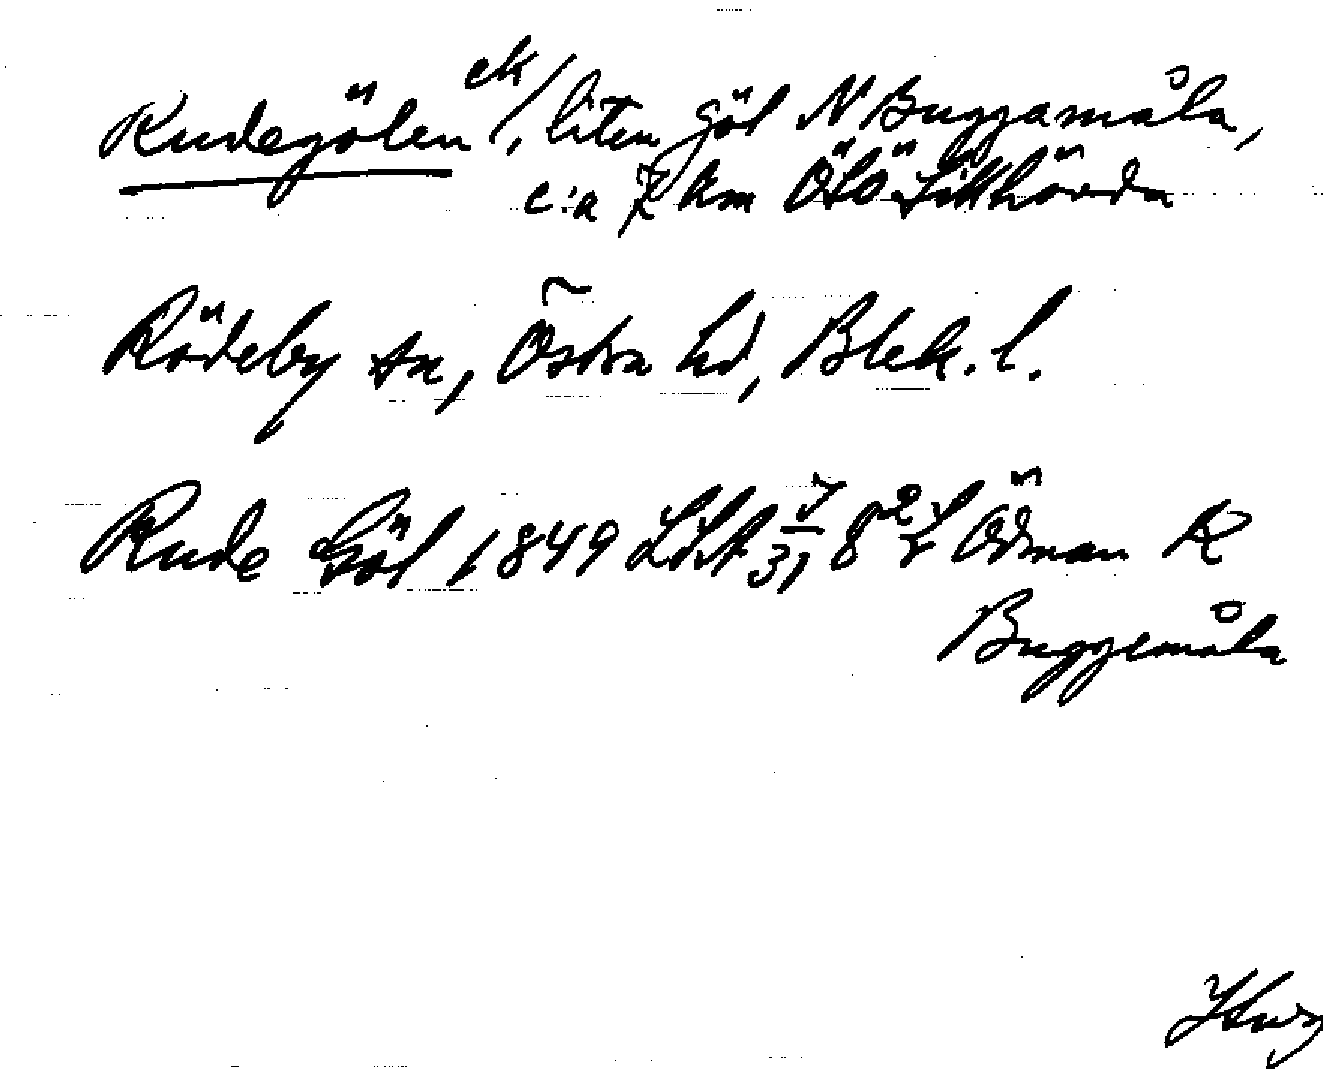 Rudegölen ek/, liten göl N Buggamåla,
c:a 7 km ÖSÖ Lillhövda
Rödeby sn, Östra hd, Blek. l.
Rude Göl 1849 LSA Ödman K
Buggemåla